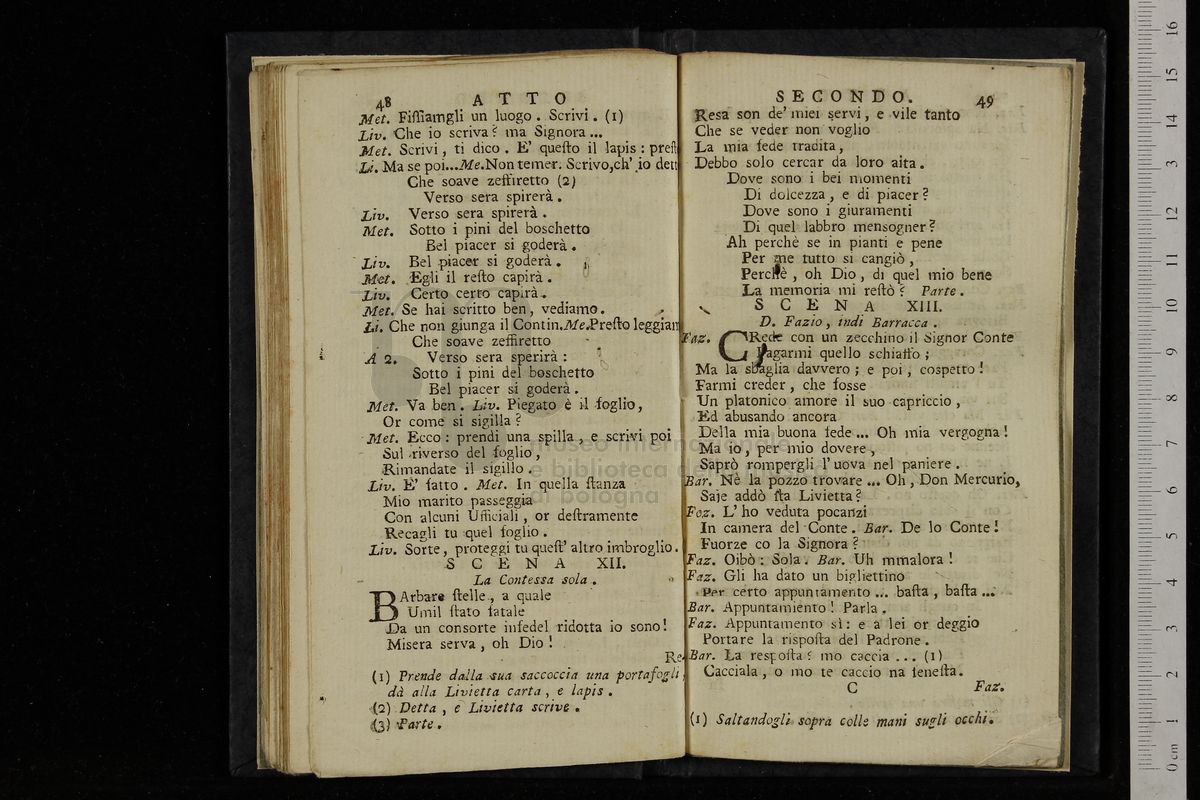 48 ATTO
Met. Fiſſiamgli un luogo. Scrivi. (1)
Liv. Che io scriva? ma Signora...
Met. Scrivi, ti dico. E' queſto il lapis: preſt
Li. Ma se poi...Me.Non temer. Scrivo, ch' io dett
Che soave zeffiretto (2)
Verso sera spirerà.
Liv. Verso sera spirerà.
Met. Sotto i pini del boschetto
Bel piacer si goderà.
Liv. Bel piacer si goderà.
Met. Egli il reſto capirà.
Liv. Certo certo capirà.
Met. Se hai scritto ben, vediamo.
Li. Che non giunga il Contin.Me.Preſto leggiam
Che soave zeffiretto
A 2. Verso sera sperirà:
Sotto i pini del boschetto
Bel piacer si goderà.
Met. Va ben. Liv. Piegato è il foglio,
Or come si sigilla?
Met. Ecco: prendi una spilla, e scrivi poi
Sul riverso del foglio,
Rimandate il sigillo.
Liv. E' fatto. Met. In quella ſtanza
Mio marito passeggia
Con alcuni Ufficiali, or deſtramente
Recagli tu quel foglio.
Liv. Sorte, proteggi tu queſt' altro imbroglio.
SCENA XII.
La Contessa sola.
BArbare ſtelle, a quale
Umil ſtato fatale
Da un consorte infedel ridotta io sono!
Misera serva, oh Dio!
Re-
(1) Prende dalla sua saccoccia una portafogli,
dà alla Livietta carta, e lapis.
(2) Detta, e Livietta scrive.
(3) Parte.
SECONDO. 49
Resa son de' miei servi, e vile tanto
Che se veder non voglio
La mia fede tradita,
Debbo solo cercar da loro aita.
Dove sono i bei momenti
Di dolcezza, e di piacer?
Dove sono i giuramenti
Di quel labbro mensogner?
Ah perchè se in pianti e pene
Per me tutto si cangiò,
Perchè, oh Dio, di quel mio bene
La memoria mi reſtò? Parte.
SCENA XIII.
D. Fazio, indi Barracca.
Faz. CRede con un zecchino il Signor Conte
Pagarmi quello schiaffo;
Ma la sbaglia davvero; e poi, cospetto!
Farmi creder, che fosse
Un platonico amore il suo capriccio,
Ed abusando ancora
Della mia buona fede... Oh mia vergogna!
Ma io, per mio dovere,
Saprò rompergli l'uova nel paniere.
Bar. Nè la pozzo trovare... Oh, Don Mercurio,
Saje addò ſta Livietta?
Faz. L'ho veduta pocanzi
In camera del Conte. Bar. De lo Conte!
Fuorze co la Signora?
Faz. Oibò: Sola. Bar. Uh mmalora!
Faz. Gli ha dato un bigliettino
Per certo appuntamento... baſta, baſta...
Bar. Appuntamiento! Parla.
Faz. Appuntamento sì: e a lei or deggio
Portare la rispoſta del Padrone.
Bar. La respoſta? mo caccia... (1)
Cacciala, o mo te caccio na feneſta.
C Faz.
(1) Saltandogli sopra colle mani sugli occhi.
museo internazionale
e biblioteca della musica
di bologna
0 cm 1 2 3 4 5 6 7 8 9 10 11 12 13 14 15 16